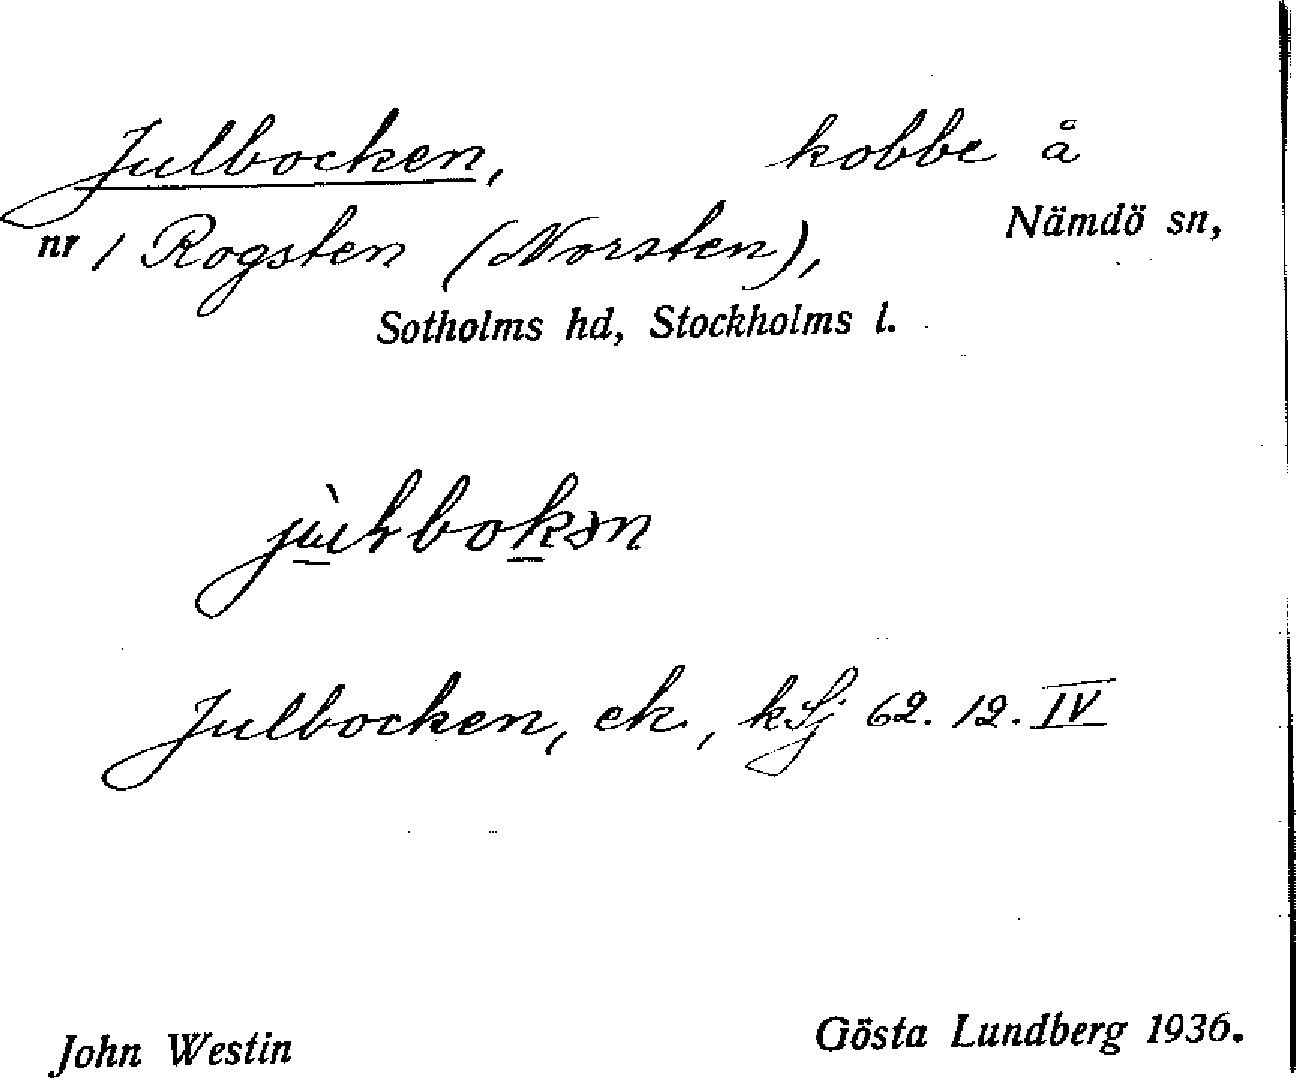 Julbocken, kobbe å
nr 1 Rogsten (Norsten), Nämdö sn,
Sotholms hd, Stockholms l.
Julbocken, ek, kSj 62. 12. IV
John Westin Gösta Lundberg 1936.